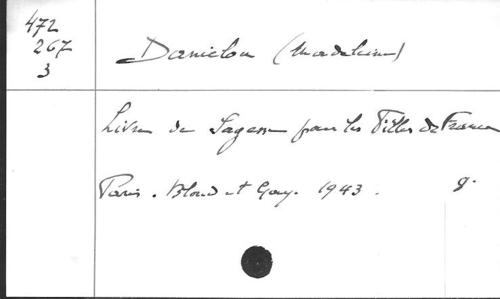 472
267
3
Daniélou (Madeleine)
Livre de Sagesse pour les Filles de France
Paris. Bloud et Gay. 1943.
g.